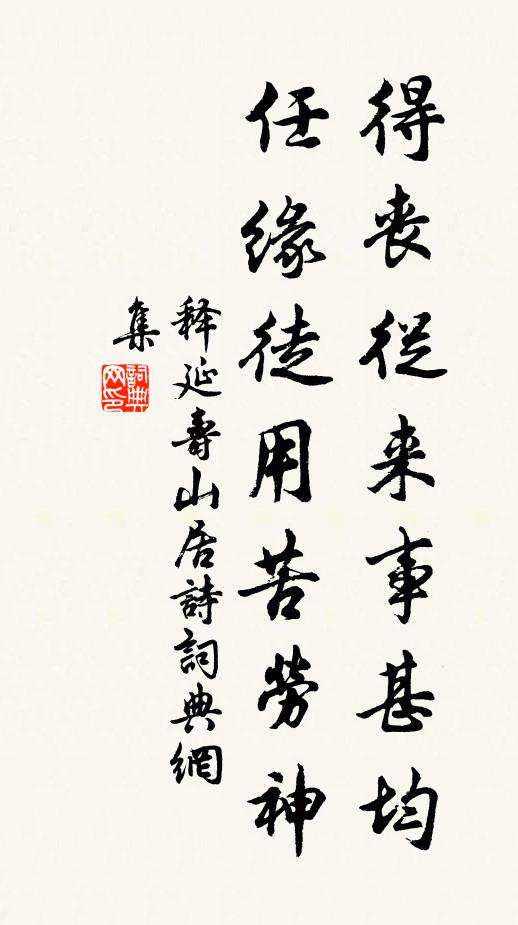 得丧從来事甚均
任緣徒用苦勞神
释延壽山居詩詞典網
集
詞典网印